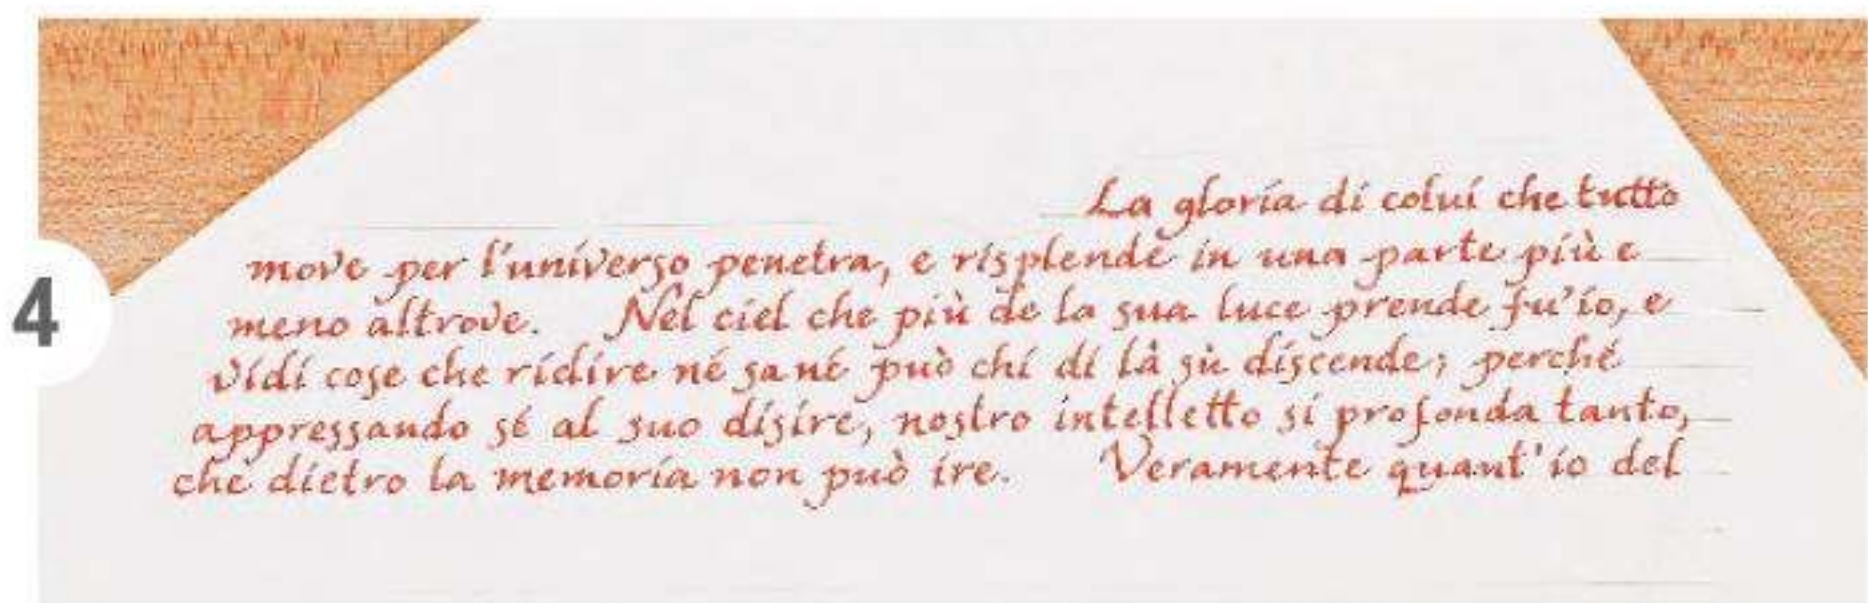 4
La gloria di colui che tutto
move per l'universo penetra, e risplende in una parte più e
meno altrove. Nel ciel che più de la sua luce prende fu'io, e
vidi cose che ridire né sa né può chi di là sù discende; perché
appressando sé al suo disire, nostro intelletto si profonda tanto,
che dietro la memoria non può ire. Veramente quant'io del